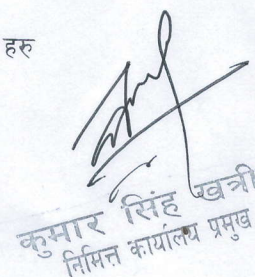 हरु
कुमार सिंह खत्री
निमित्त कार्यालय प्रमुख